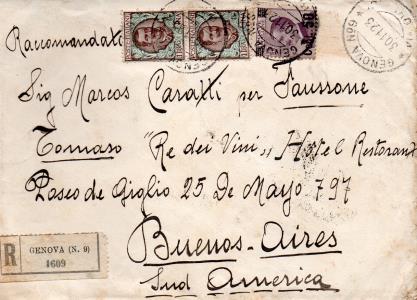 Raccomandata
Sig Marcos Caratti per Faussone
Tomaso "Re dei Vini" Hotel Restorant
Paseo de Giglio 25 de Mayo 797
Buenos-Aires
Sud America
GENOVA
30.11.23
R
GENOVA (N. 9)
1609